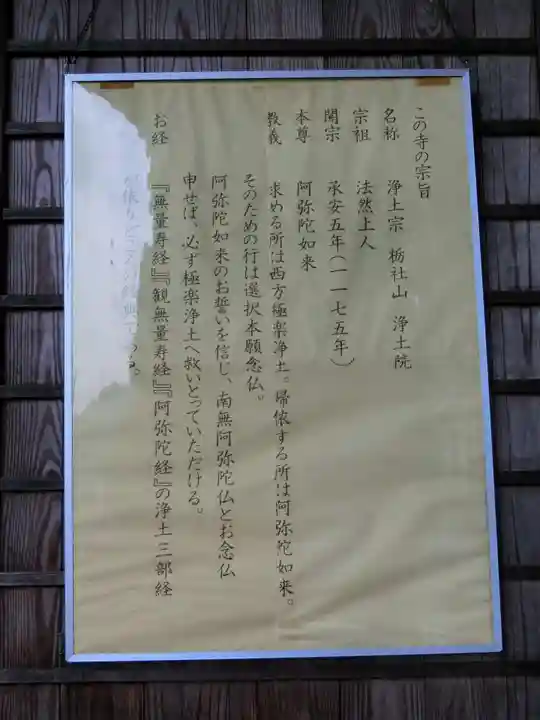 この寺の宗旨
名称　浄土宗　栃社山　浄土院
宗祖　法然上人
開宗　承安五年(一一七五年)
本尊　阿弥陀如来
教義　求める所は西方極楽浄土。帰依する所は阿弥陀如来。
そのための行は選択本願念仏。
阿弥陀如来のお誓いを信じ、南無阿弥陀仏とお念仏
申せば、必ず極楽浄土へ救いとっていただける。
お経　『無量寿経』『観無量寿経』『阿弥陀経』の浄土三部経